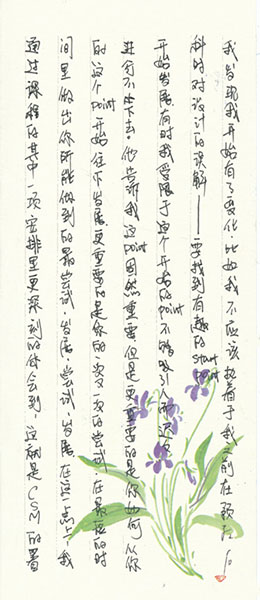 我发现我开始有了变化，比如我不应该执着于我之前在预
科时对设计的误解——要找到有趣的start point
开始发展，有时我受限于这个开始的point不够吸引而迟迟
进行不下去。他告诉我这point固然重要但是更重要的是你如何从你
的这个point开始往下发展，更重要的是你的一次又一次的尝试，在最后的时
间里做出你所能做到的最，尝试，发展，尝试，发展，在这一点上，我
通过课程的其中一项安排里更深刻的体会到，这就是CSM的